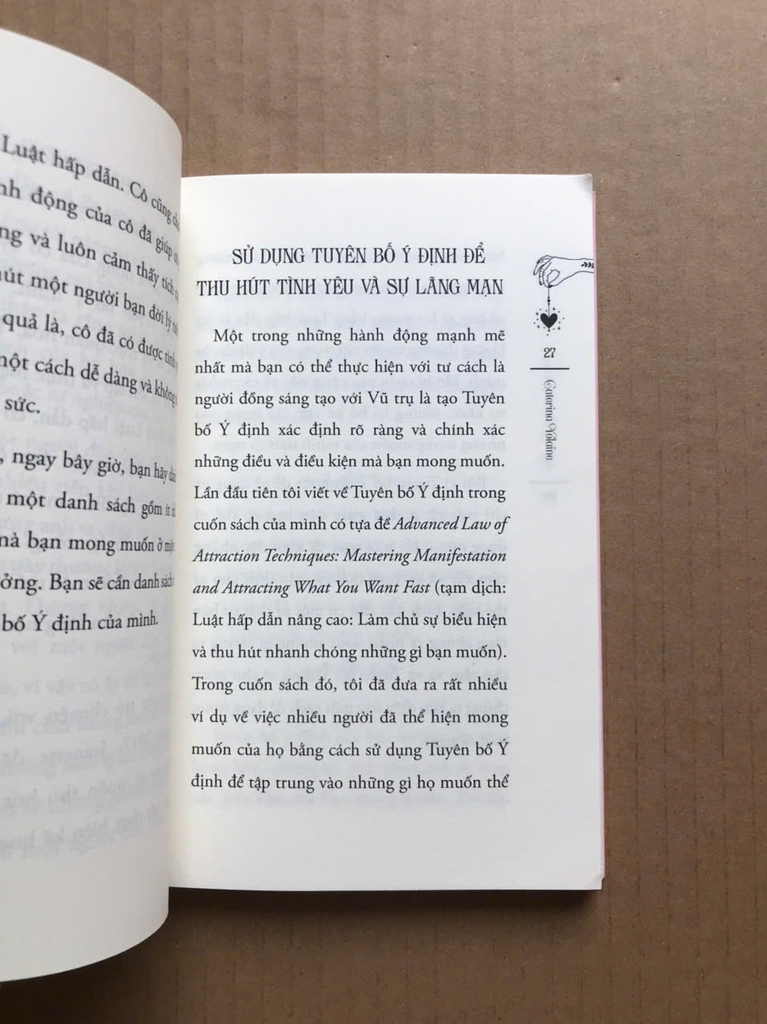 Luật hấp dẫn. Cô cũng
động của cô đã giúp
và luôn cảm thấy tích
một người bạn đời lý
quả là, cô đã có được
một cách dễ dàng và không
sức.
ngay bây giờ, bạn hãy
một danh sách gồm ít
mà bạn mong muốn ở
Bạn sẽ cần danh sách
bố Ý định của mình.
SỬ DỤNG TUYÊN BỐ Ý ĐỊNH ĐỂ
THU HÚT TÌNH YÊU VÀ SỰ LÃNG MẠN
Một trong những hành động mạnh mẽ
nhất mà bạn có thể thực hiện với tư cách là
người đồng sáng tạo với Vũ trụ là tạo Tuyên
bố Ý định xác định rõ ràng và chính xác
những điều và điều kiện mà bạn mong muốn.
Lần đầu tiên tôi viết về Tuyên bố Ý định trong
cuốn sách của mình có tựa đề Advanced Law of
Attraction Techniques: Mastering Manifestation
and Attracting What You Want Fast (tạm dịch:
Luật hấp dẫn nâng cao: Làm chủ sự biểu hiện
và thu hút nhanh chóng những gì bạn muốn).
Trong cuốn sách đó, tôi đã đưa ra rất nhiều
ví dụ về việc nhiều người đã thể hiện mong
muốn của họ bằng cách sử dụng Tuyên bố Ý
định để tập trung vào những gì họ muốn thể
27